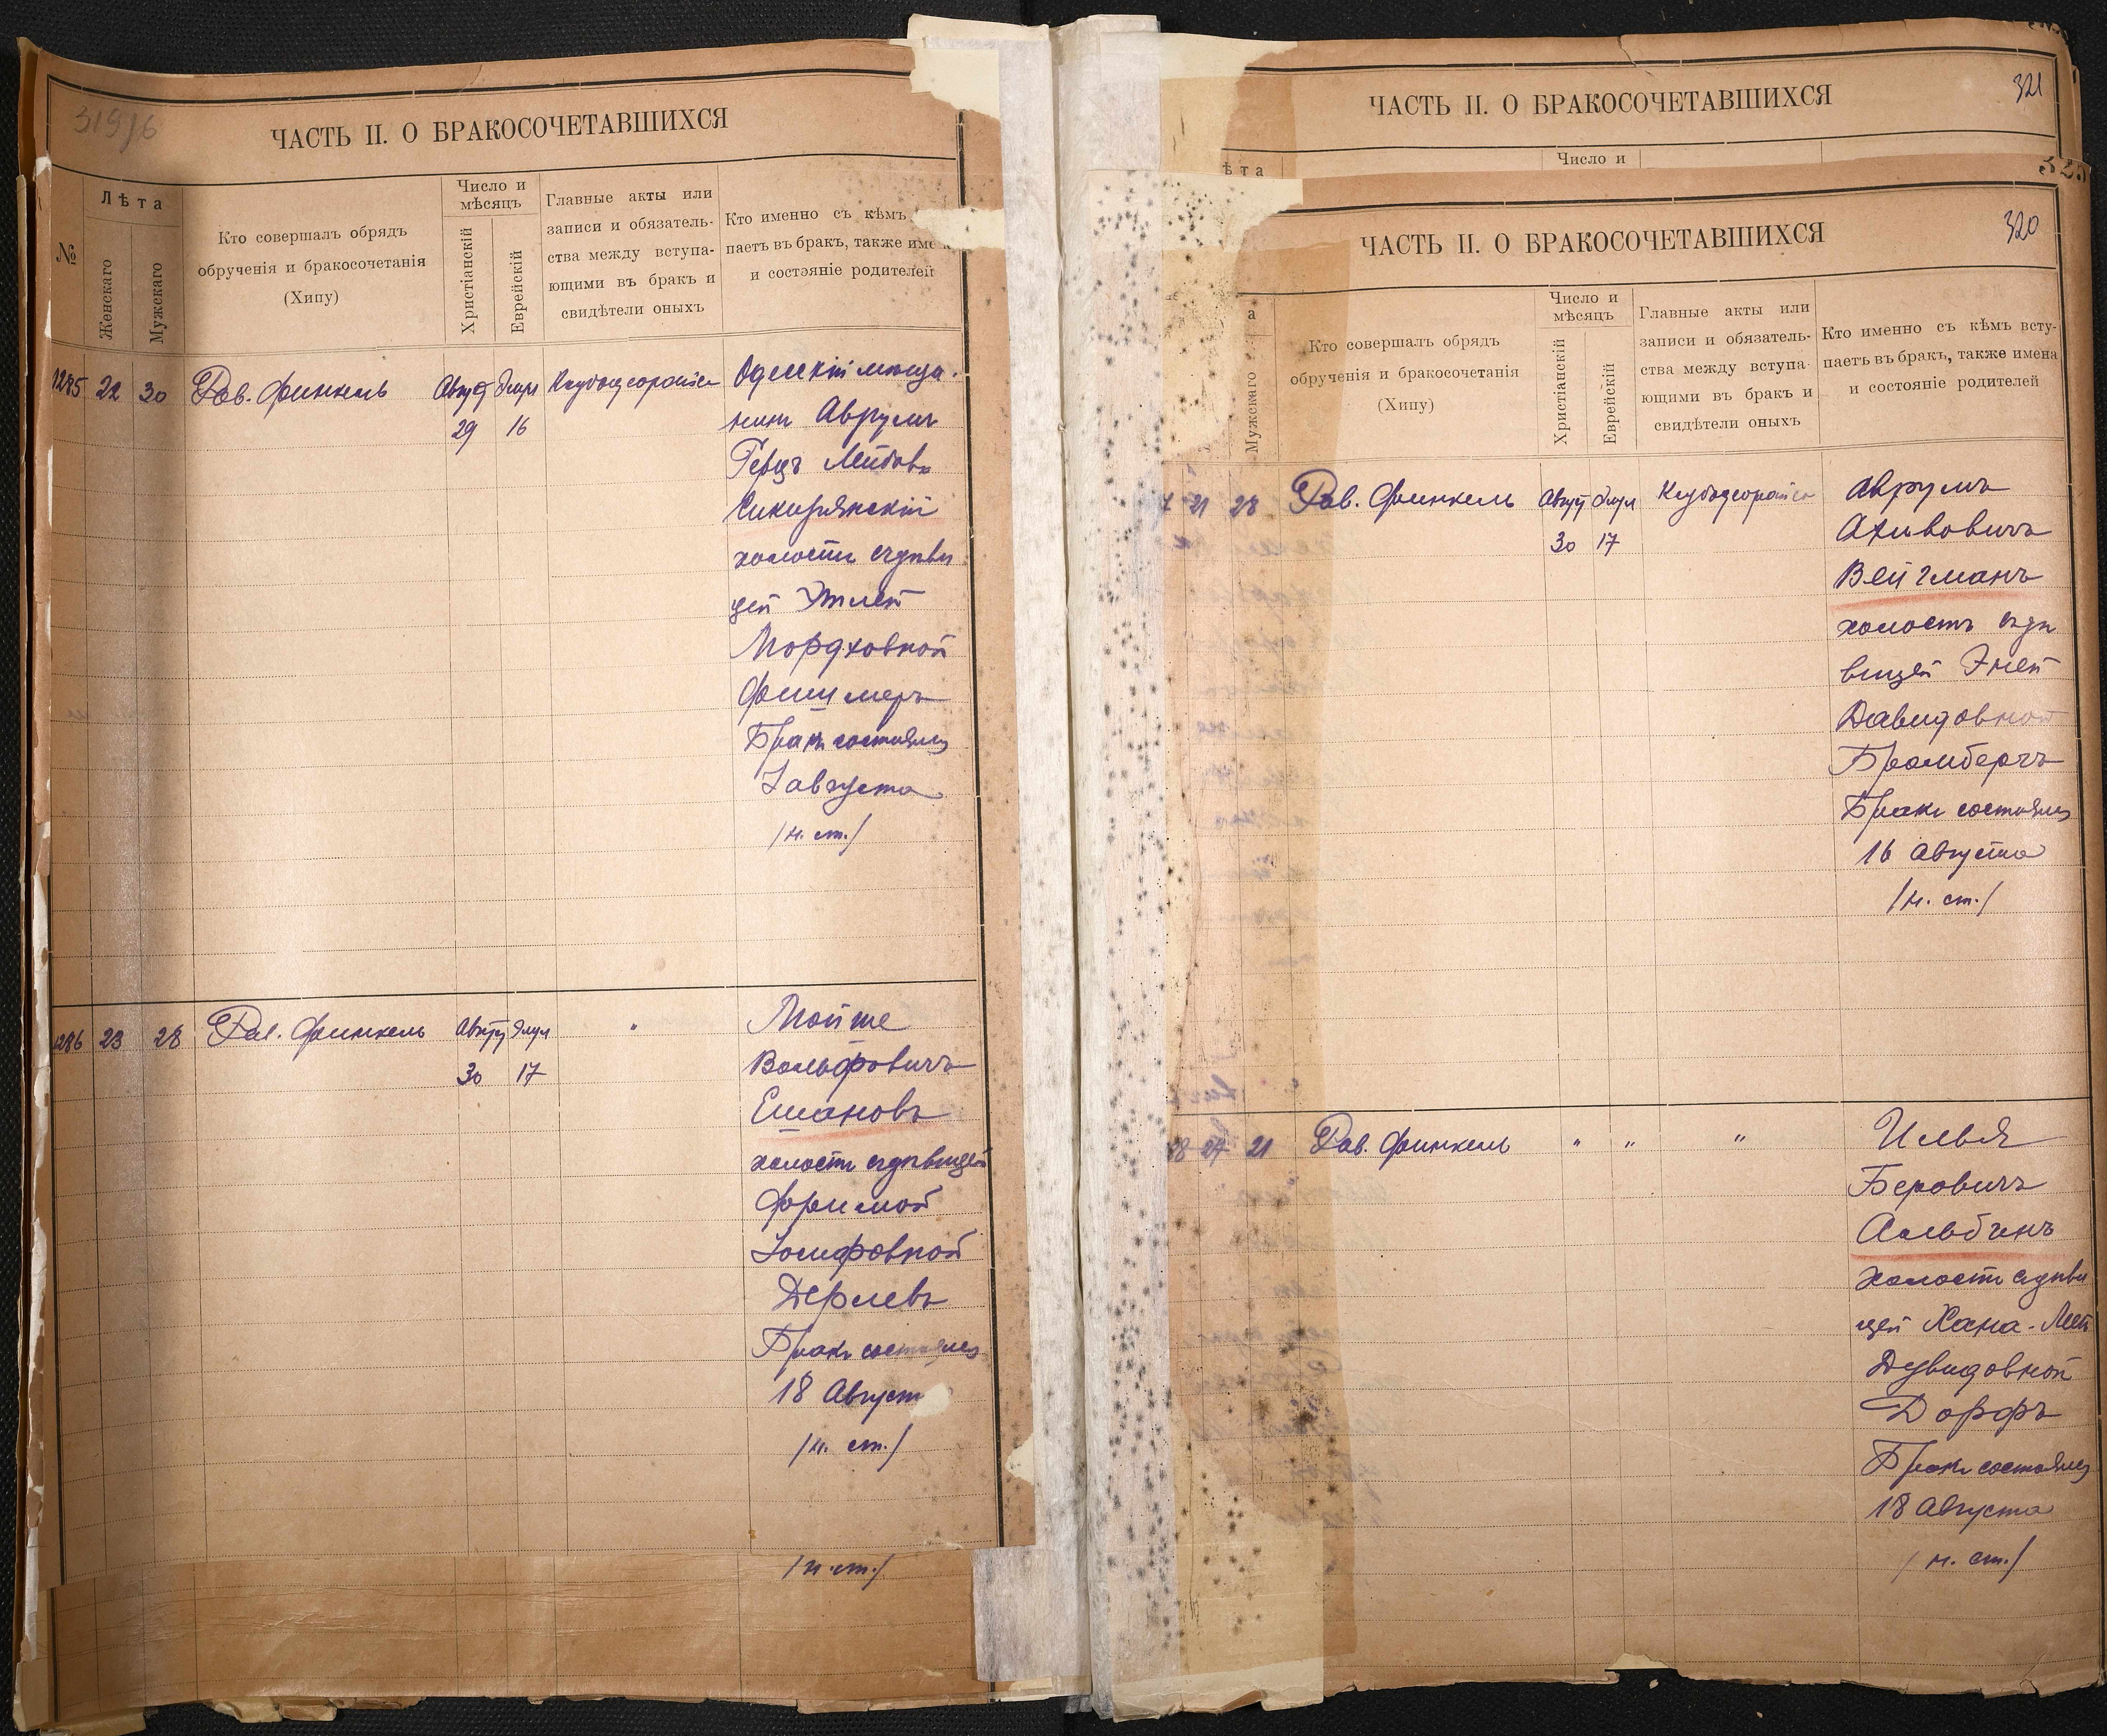 319/б
ЧАСТЬ II. О БРАКОСОЧЕТАВШИХСЯ
№
Лѣта
Женскаго
Мужскаго
Кто совершалъ обрядъ
обрученія и бракосочетанія
(Хипу)
Число и
мѣсяцъ
Христіанскій
Еврейскій
Главные акты или
записи и обязатель-
ства между вступа-
ющими въ бракъ и
свидѣтели оныхъ
Кто именно съ кѣмъ
паетъ въ бракъ, также имена
и состояніе родителей
1285 22 30 Рав. Финкель Август Элул
29 16
Одесскій мѣща-
нинъ Аврумъ
Герцъ Лейбовъ
Сикурянскій
холостъ съ дѣви
цей Этлей
Мордховной
Фишмеръ
Бракъ состоялся
7 августа
/н. ст./
1286 23 28 Рав. Финкель Август Элул "
30 17
Мойше
Вольфовичъ
Ешановъ
холостъ съ дѣвицей
Фримой
Іосифовной
Дерлевъ
Бракъ состоялся
18 Август
/н. ст./
/н. ст./
321
ЧАСТЬ II. О БРАКОСОЧЕТАВШИХСЯ
ѣта
Число и
320
ЧАСТЬ II. О БРАКОСОЧЕТАВШИХСЯ
а
Мужскаго
Кто совершалъ обрядъ
обрученія и бракосочетанія
(Хипу)
Число и
мѣсяцъ
Христіанскій
Еврейскій
Главные акты или
записи и обязатель-
ства между вступа-
ющими въ бракъ и
свидѣтели оныхъ
Кто именно съ кѣмъ всту-
паетъ въ бракъ, также имена
и состояніе родителей
7 21 28 Рав. Финкель Август Элул
30 17
Аврумъ
Акивовичъ
Вейгманъ
холостъ съ дѣ
вицей Эней
Давидовной
Бромбергъ
Бракъ состоялся
16 Августа
/н. ст./
88 24 21 Рав. Финкель " " "
Илья
Беровичъ
Альбинъ
Холостъ съ дѣви
цей Хана-Лей
Дувидовной
Дорфъ
Бракъ состоялся
18 Августа
/н. ст./